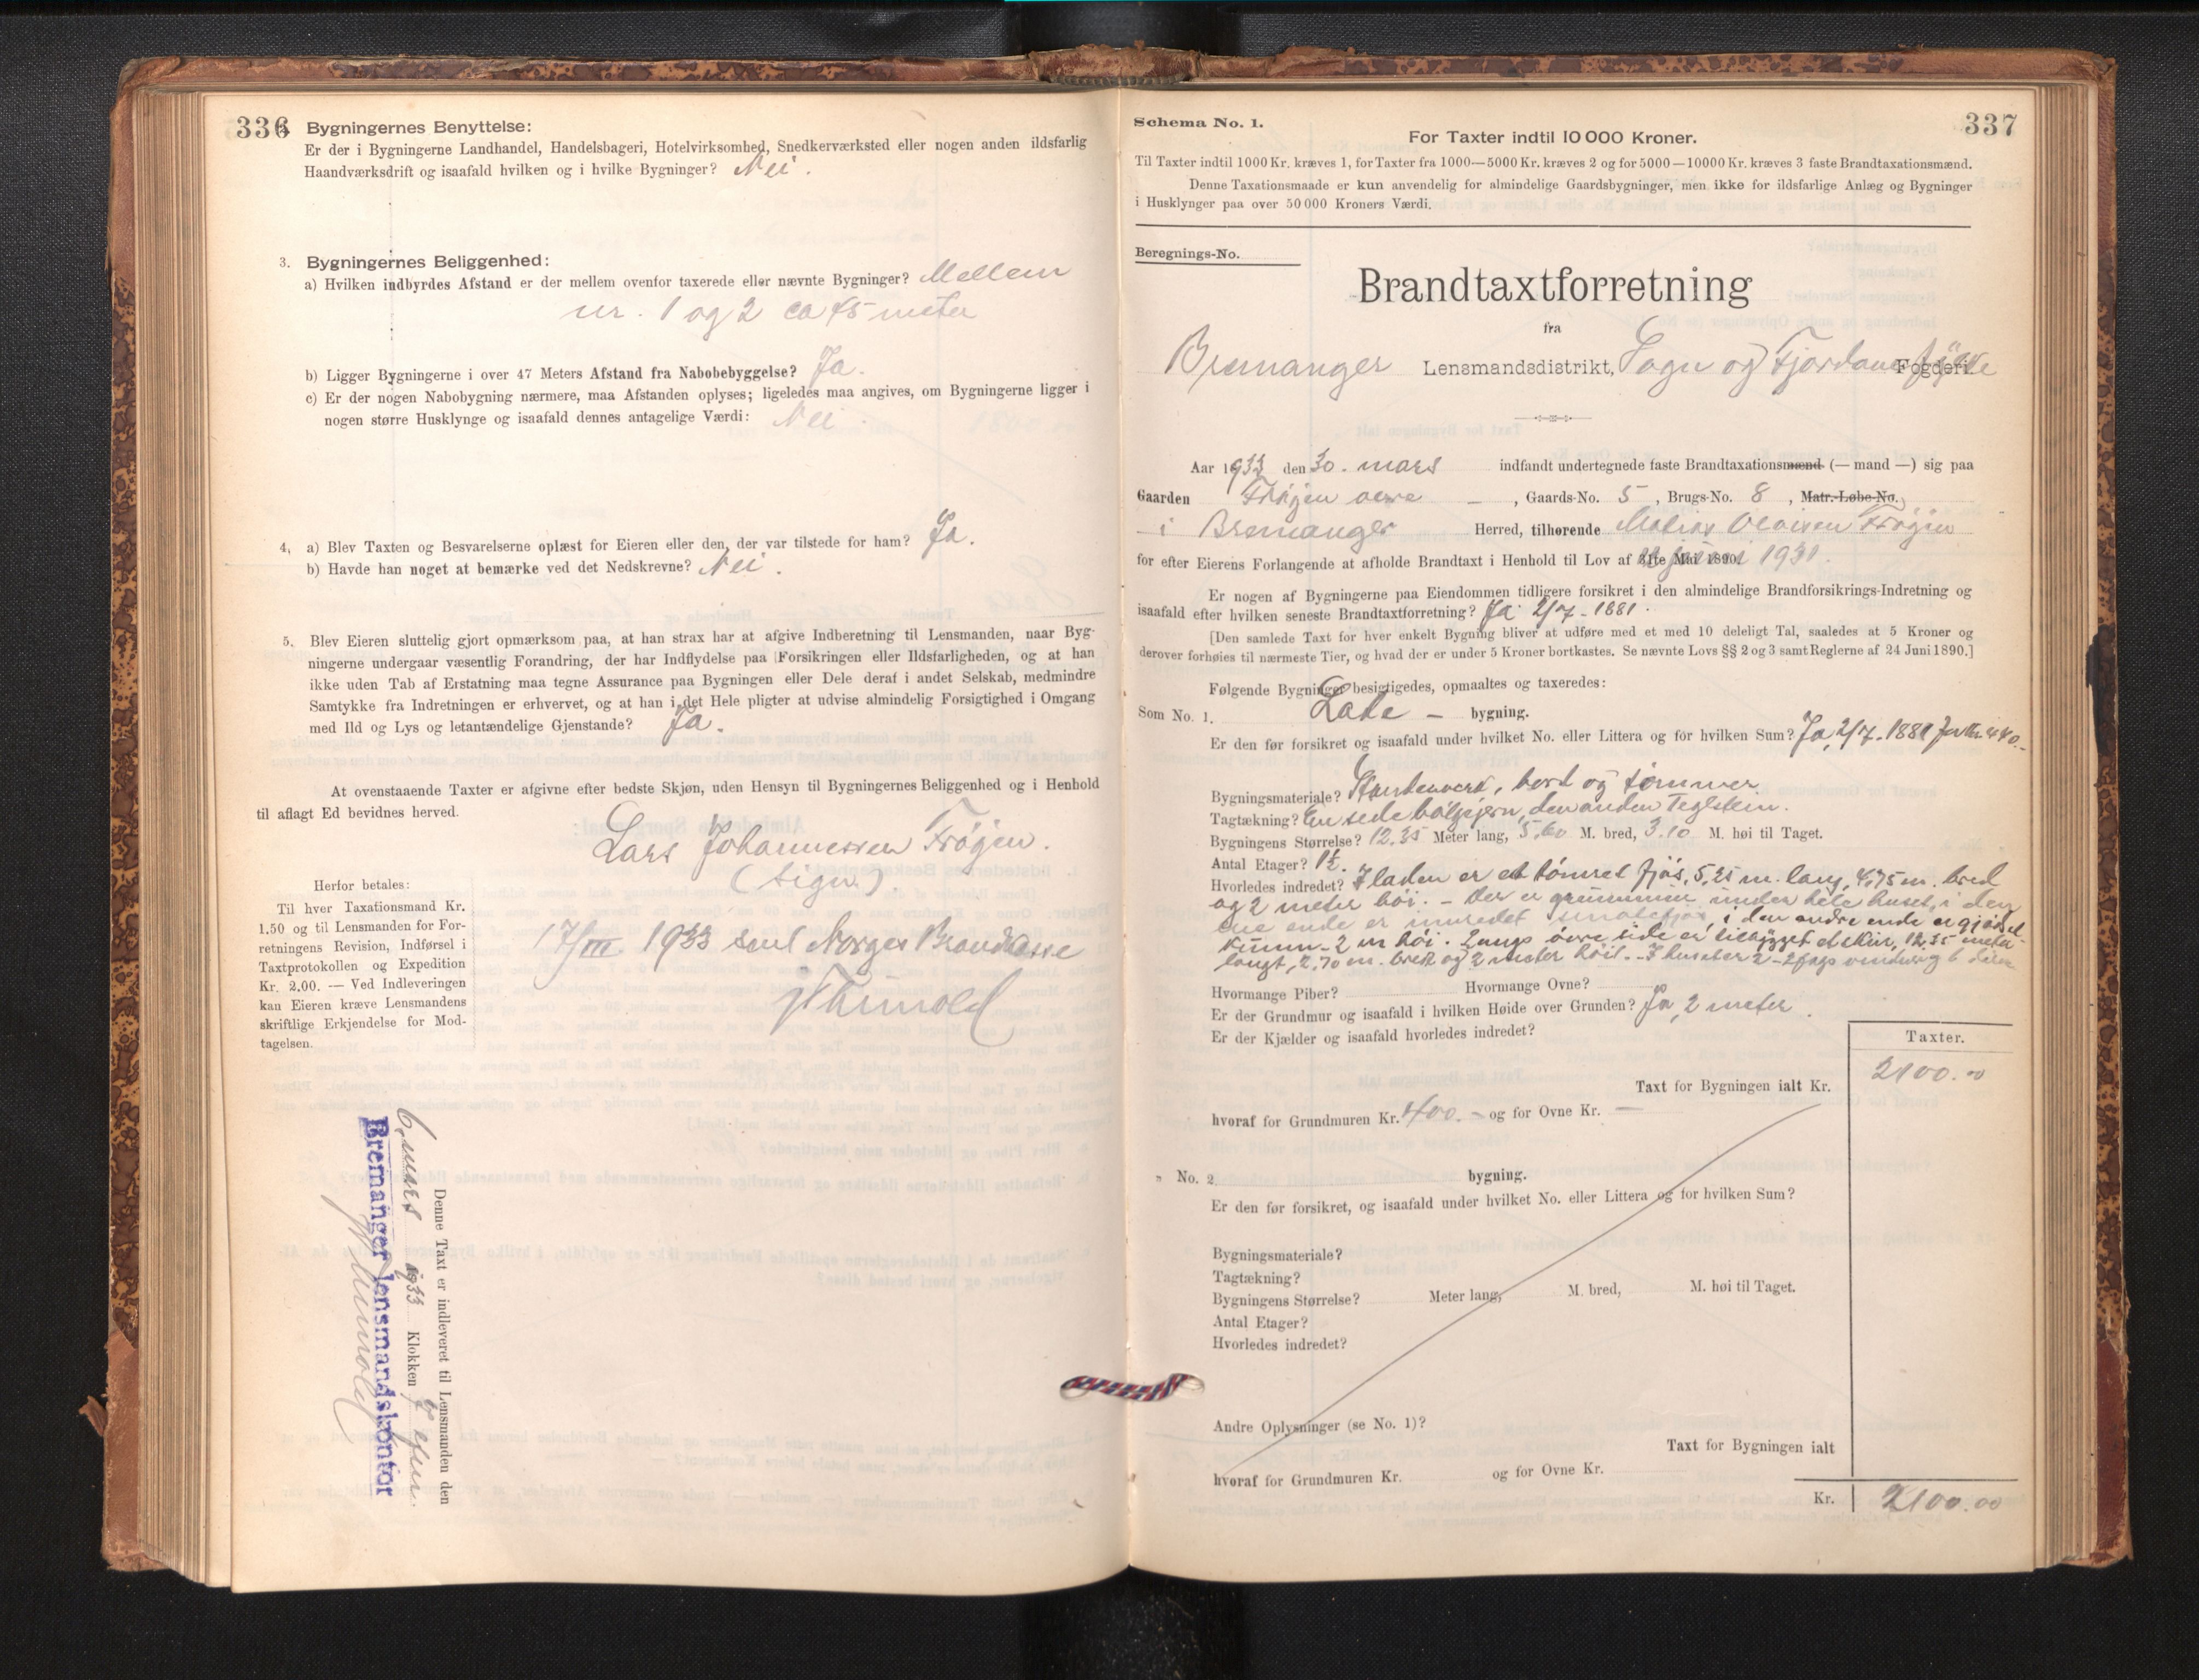 336
Bygningernes Benyttelse:
Er der i Bygningerne Landhandel, Handelsbageri, Hotelvirksomhed, Snedkerværksted eller nogen anden ildsfarlig
Haandværksdrift og isaafald hvilken og i hvilke Bygninger? Nei.
3. Bygningernes Beliggenhed:
a) Hvilken indbyrdes Afstand er der mellem ovenfor taxerede eller nævnte Bygninger? Mellem
nr. 1 og 2 ca 45 meter
b) Ligger Bygningerne i over 47 Meters Afstand fra Nabobebyggelse? Ja.
c) Er der nogen Nabobygning nærmere, maa Afstanden oplyses; ligeledes maa angives, om Bygningerne ligger i
nogen større Husklynge og isaafald dennes antagelige Værdi: Nei.
4. a) Blev Taxten og Besvarelserne oplæst for Eieren eller den, der var tilstede for ham? Ja.
b) Havde han noget at bemærke ved det Nedskrevne? Nei.
5. Blev Eieren sluttelig gjort opmærksom paa, at han strax har at afgive Indberetning til Lensmanden, naar Byg-
ningerne undergaar væsentlig Forandring, der har Indflydelse paa Forsikringen eller Ildsfarligheden, og at han
ikke uden Tab af Erstatning maa tegne Assurance paa Bygningen eller Dele deraf i andet Selskab, medmindre
Samtykke fra Indretningen er erhvervet, og at han i det Hele pligter at udvise almindelig Forsigtighed i Omgang
med Ild og Lys og letantændelige Gjenstande? Ja.
At ovenstaaende Taxter er afgivne efter bedste Skjøn, uden Hensyn til Bygningernes Beliggenhed og i Henhold
til aflagt Ed bevidnes herved.
Lars Johannessen Frøjen.
(sign).
Herfor betales:
Til hver Taxationsmand Kr.
1.50 og til Lensmanden for For-
retningens Revision, Indførsel i
Taxtprotokollen og Expedition
Kr. 2.00. — Ved Indleveringen
kan Eieren kræve Lensmandens
skriftlige Erkjendelse for Mod-
tagelsen.
17/III 1933 sent Norges Brandkasse
Denne Taxt er indleveret til Lensmanden den
6. mars 1933 Klokken efter.
Bremanger lensmandskontor
337
Schema No. 1.
For Taxter indtil 10 000 Kroner.
Til Taxter indtil 1000 Kr. kræves 1, for Taxter fra 1000—5000 Kr. kræves 2 og for 5000—10000 Kr. kræves 3 faste Brandtaxationsmænd.
Denne Taxationsmaade er kun anvendelig for almindelige Gaardsbygninger, men ikke for ildsfarlige Anlæg og Bygninger
i Husklynger paa over 50 000 Kroners Værdi.
Beregnings-No.
Brandtaxtforretning
fra
Bremanger Lensmandsdistrikt, Sogn og Fjordane fylke Fogderi.
Aar 1933 den 30. mars indfandt undertegnede faste Brandtaxationsmænd (— mand —) sig paa
Gaarden Frøjen øvre, Gaards-No. 5, Brugs-No. 8, Matr.-Løbe-No.
i Bremanger Herred, tilhørende Matias Olaisen Frøjen
for efter Eierens Forlangende at afholde Brandtaxt i Henhold til Lov af 31te Mai 1890. juni 1931.
Er nogen af Bygningerne paa Eiendommen tidligere forsikret i den almindelige Brandforsikrings-Indretning og
isaafald efter hvilken seneste Brandtaxtforretning? Ja 2/7-1881.
[Den samlede Taxt for hver enkelt Bygning bliver at udføre med et med 10 deleligt Tal, saaledes at 5 Kroner og
derover forhøies til nærmeste Tier, og hvad der er under 5 Kroner bortkastes. Se nævnte Lovs §§ 2 og 3 samt Reglerne af 24 Juni 1890.]
Følgende Bygninger besigtigedes, opmaaltes og taxeredes:
Som No. 1. Lade — bygning.
Er den før forsikret og isaafald under hvilket No. eller Littera og for hvilken Sum? Ja, 2/7-1881 for kr. 440.-
Bygningsmateriale? Stenderverk, bord og tømmer
Tagtækning? En side bølgejern, den anden Teglstein.
Bygningens Størrelse? 12.35 Meter lang, 5,60 M. bred, 3.10 M. høi til Taget.
Antal Etager? 1½.
Hvorledes indredet? I laden er et tømret fjøs, 5,25 m. lang, 4,75 m. bred
og 2 meter høi. - Der er grunnmur under hele huset, i den
ene ende er innredet smalefjøs, i den andre ende er gjødsel
kum - 2 m høi. Langs øvre side er tilbygget et skur, 12,35 meter
langt, 2,70 m. bredt og 2 meter høit. - I huset er 2 - 2 fags vinduer og 6 dører
Hvormange Piber? Hvormange Ovne?
Er der Grundmur og isaafald i hvilken Høide over Grunden? Ja, 2 meter.
Er der Kjælder og isaafald hvorledes indredet?
Taxter.
Taxt for Bygningen ialt Kr. 2100.00
hvoraf for Grundmuren Kr. 400.- og for Ovne Kr. —
" No. 2 bygning.
Er den før forsikret, og isaafald under hvilket No. eller Littera og for hvilken Sum?
Bygningsmateriale?
Tagtækning?
Bygningens Størrelse? Meter lang, M. bred, M. høi til Taget.
Antal Etager?
Hvorledes indredet?
Andre Oplysninger (se No. 1)?
Taxt for Bygningen ialt
hvoraf for Grundmuren Kr. og for Ovne Kr.
Kr. 2100.00